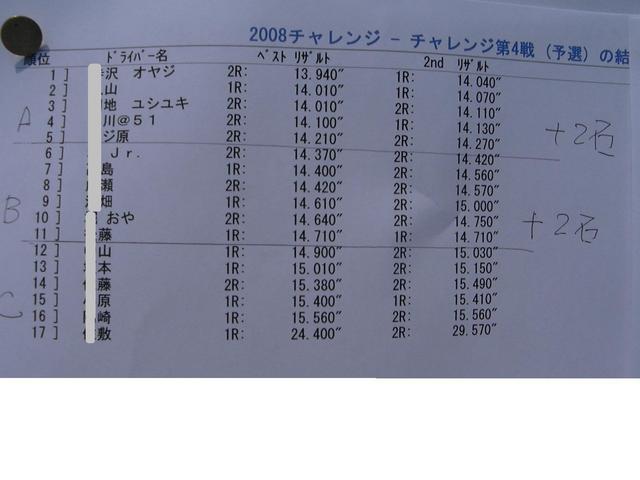 2008チャレンジ － チャレンジ第4戦 (予選) の結
順位 ﾄﾞﾗｲﾊﾞｰ名 ﾍﾞｽﾄ ﾘｻﾞﾙﾄ 2nd ﾘｻﾞﾙﾄ
1 ] 沢 オヤジ 2R: 13.940″ 1R: 14.040″
2 ] 山 1R: 14.010″ 2R: 14.070″
3 ] 地 ユシユキ 2R: 14.010″ 1R: 14.110″
A 4 ] 川＠５１ 2R: 14.100″ 1R: 14.130″ +2石
5 ] ジ原 2R: 14.210″ 1R: 14.270″
6 ] Ｊｒ. 2R: 14.370″ 1R: 14.420″
7 ] 島 1R: 14.400″ 2R: 14.560″
8 ] 瀬 2R: 14.420″ 1R: 14.570″
B 9 ] 畑 1R: 14.610″ 2R: 15.000″
10 ] おや 2R: 14.640″ 1R: 14.750″ +2石
11 ] 藤 1R: 14.710″ 1R: 14.710″
12 ] 山 1R: 14.900″ 2R: 15.030″
13 ] 本 1R: 15.010″ 2R: 15.150″
14 ] 藤 2R: 15.380″ 2R: 15.490″
C 15 ] 原 1R: 15.400″ 1R: 15.410″
16 ] 崎 1R: 15.560″ 2R: 15.560″
17 ] 敷 1R: 24.400″ 2R: 29.570″